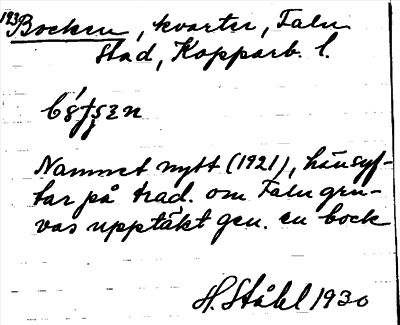 193 Bocken, kvarter, Falu
stad, Kopparb. l.
Namnet nytt (1921), hänsyf-
tar på trad. om Falu gru-
vas upptäkt gen. en bock
H. Ståhl 1930